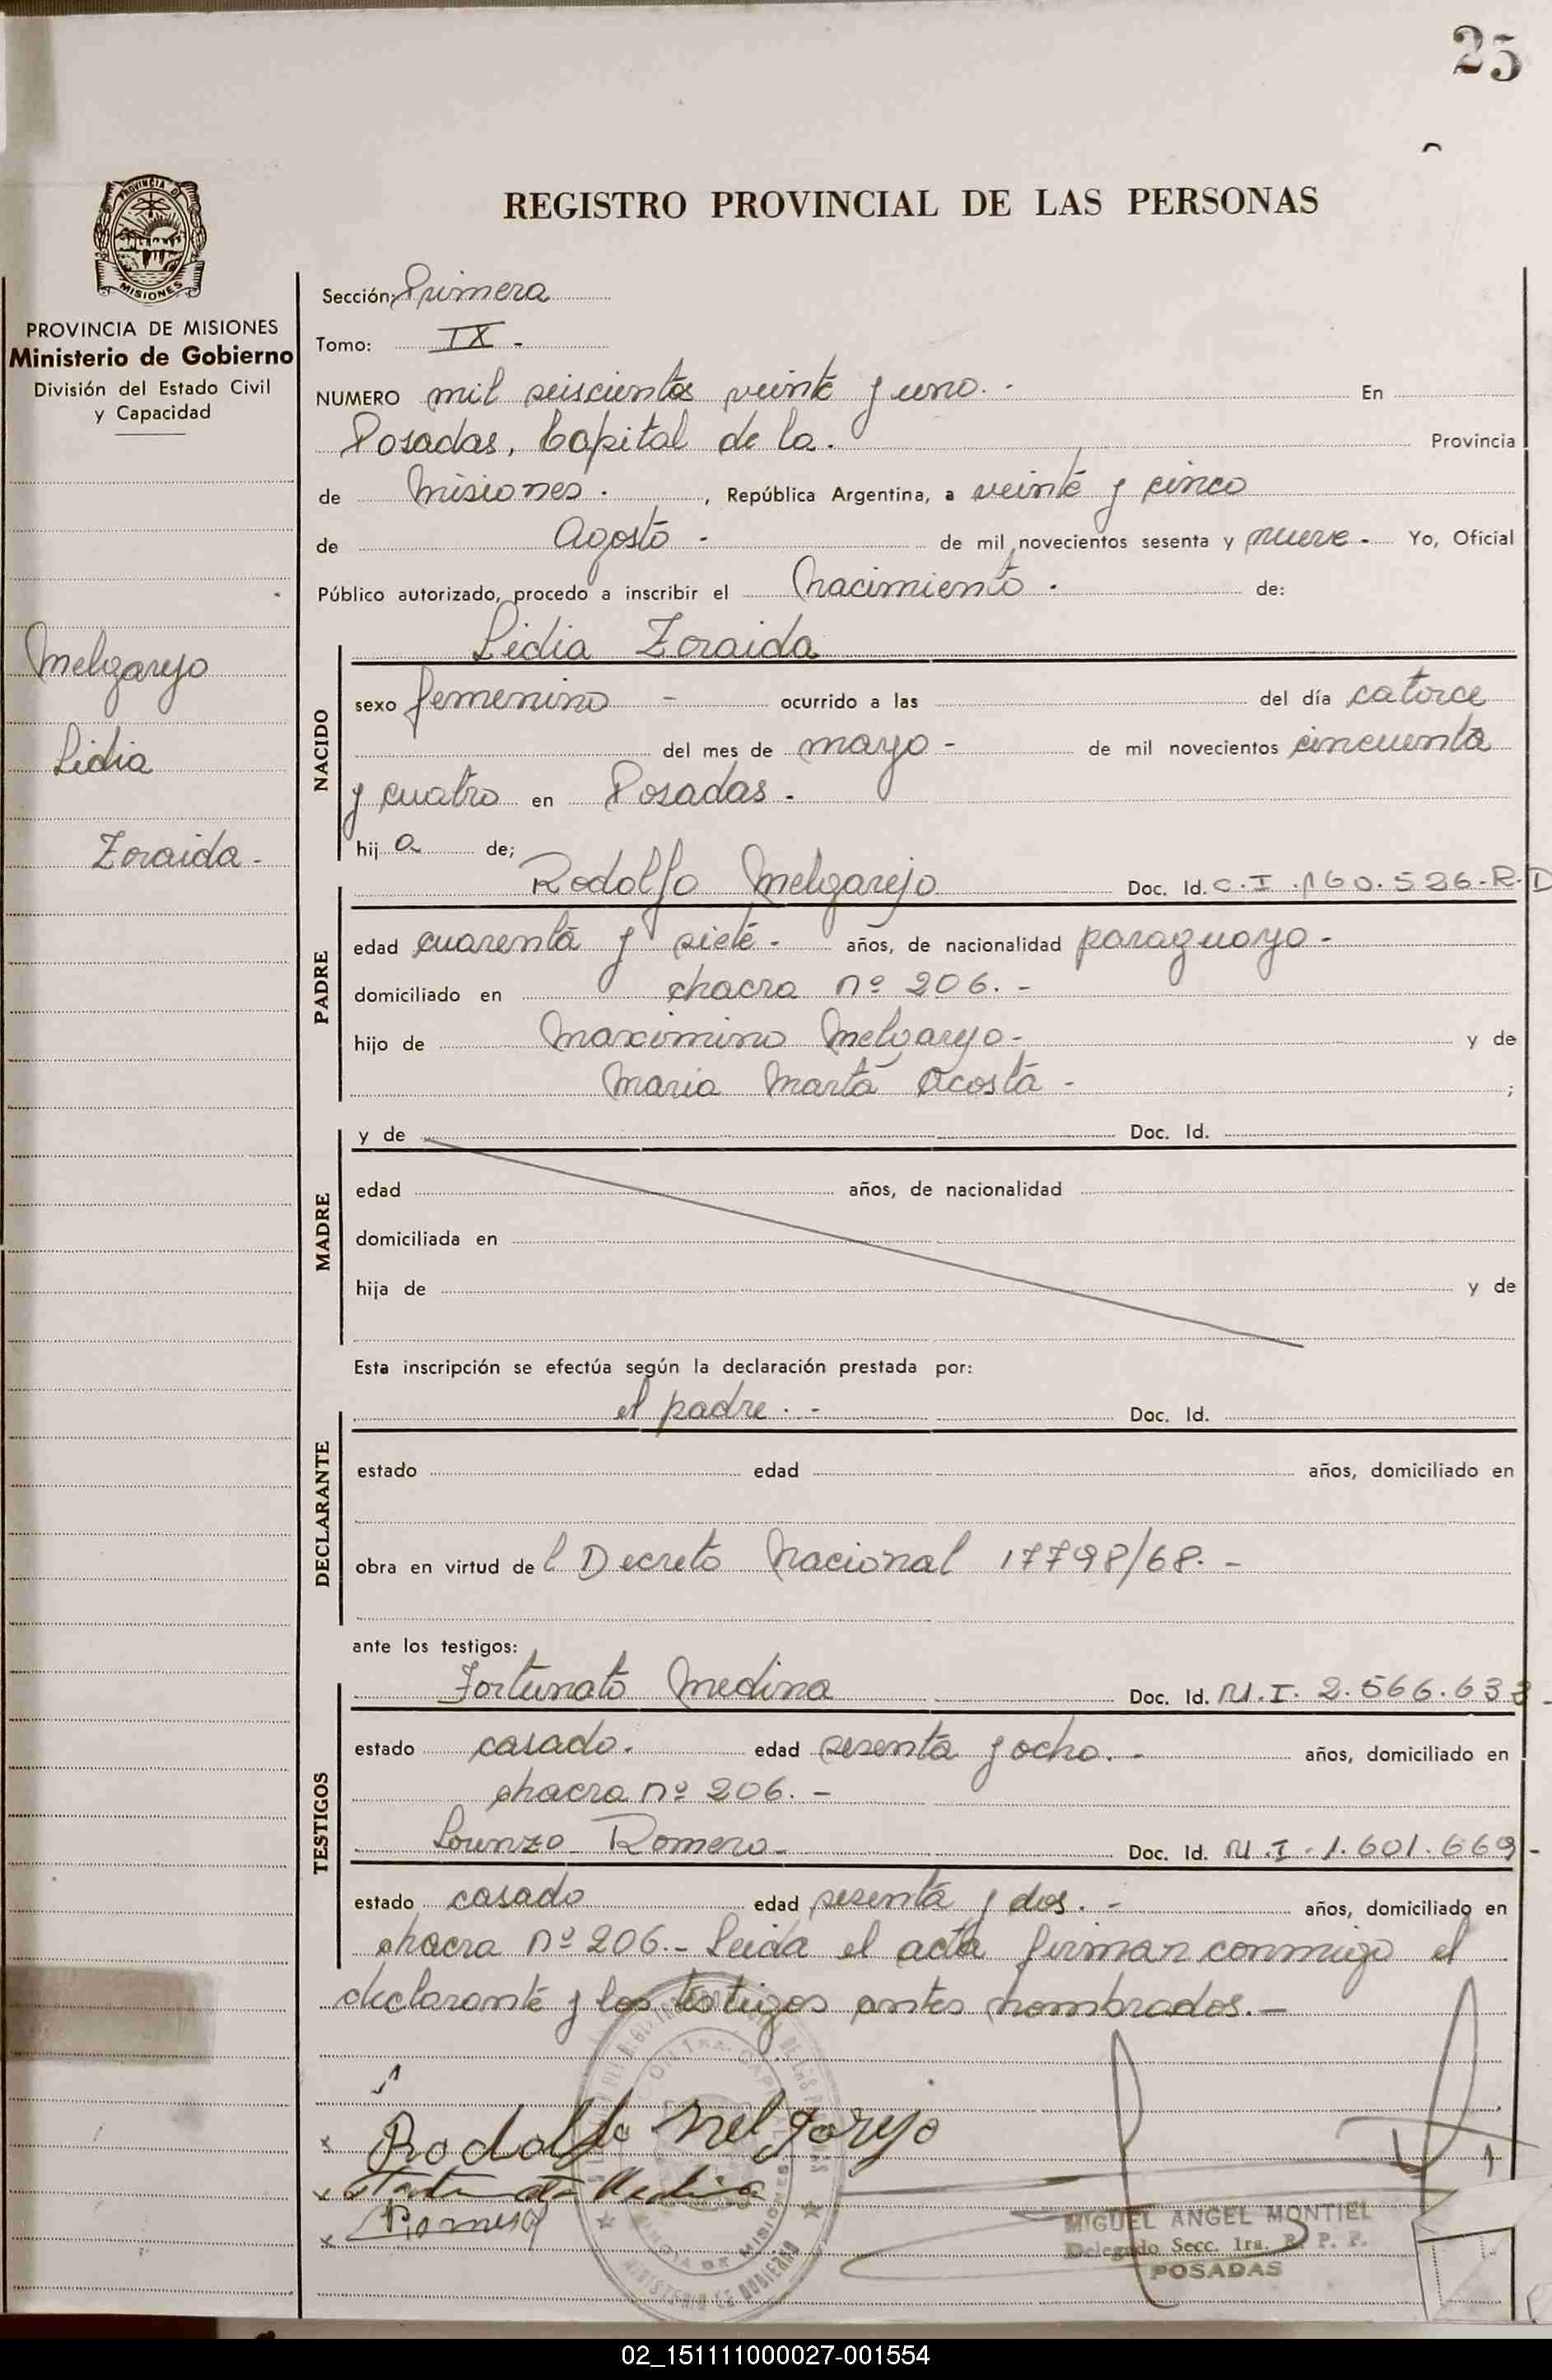 25
REGISTRO PROVINCIAL DE LAS PERSONAS
PROVINCIA DE MISIONES
Ministerio de Gobierno
División del Estado Civil
y Capacidad
Melgarejo
Lidia
Zoraida -
Sección: Primera
Tomo: IX -
NUMERO mil seiscientos veinte y uno. - En
Posadas, Capital de la. Provincia
de Misiones. , República Argentina, a veinte y cinco
de Agosto - de mil novecientos sesenta y nueve - Yo, Oficial
Público autorizado, procedo a inscribir el Nacimiento - de:
Lidia Zoraida
NACIDO
sexo femenino - ocurrido a las del día catorce
del mes de mayo - de mil novecientos cincuenta
y cuatro en Posadas -
hij a de;
Rodolfo Melgarejo Doc. Id. C.I. 160.526-R.D
PADRE
edad cuarenta y siete - años, de nacionalidad paraguayo -
domiciliado en chacra nº 206. -
hijo de Maximino Melgarejo - y de
Maria Marta Acosta - ;
MADRE
y de Doc. Id.
edad años, de nacionalidad
domiciliada en
hija de y de
Esta inscripción se efectúa según la declaración prestada por:
el padre. - Doc. Id.
DECLARANTE
estado edad años, domiciliado en
obra en virtud de l Decreto Nacional 17798/68. -
ante los testigos:
Fortunato Medina Doc. Id. M.I. 2.566.633 -
TESTIGOS
estado casado. edad sesenta y ocho. - años, domiciliado en
chacra nº 206. -
Lorenzo Romero - Doc. Id. M.I. 1.601.669 -
estado casado edad sesenta y dos. - años, domiciliado en
chacra nº 206. - Leida el acta firman conmigo el
declarante y los testigos antes nombrados. -
x Rodolfo Melgarejo
x Medina
x
MIGUEL ANGEL MONTIEL
Delegado Secc. 1ra. R. P. P.
POSADAS
MINISTERIO DE GOBIERNO
02_151111000027-001554